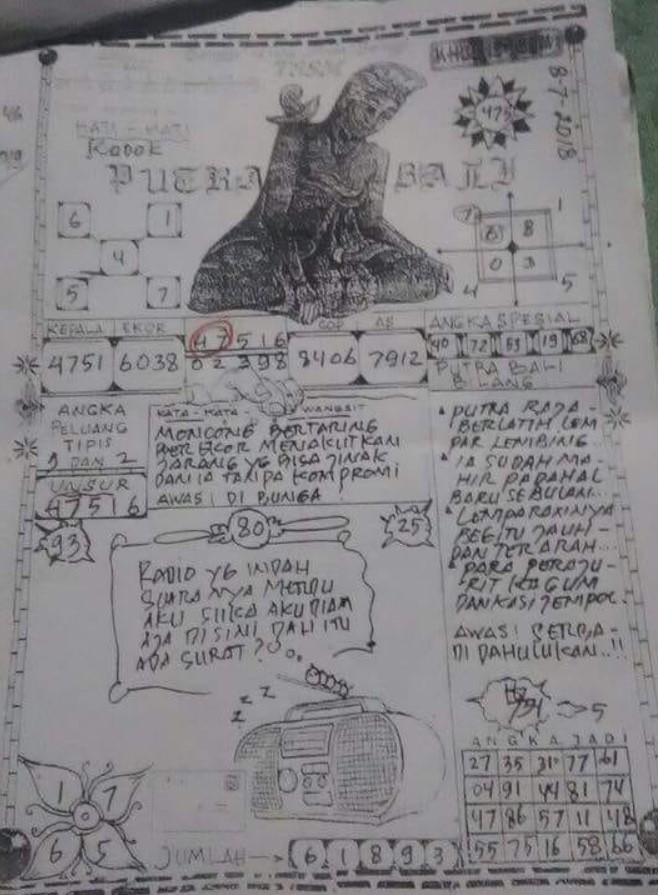 8-7-2018
475
HATI - HATI
KODOK
PUTRA BALI
6 1
4
5 7
1
8
0 3
4 5
KEPALA EKOR
4751 6038
47516
02398
COP AS
8406 7912
ANGKA SPESIAL
40 72 59 19 68
PUTRA BALI
BILANG
ANGKA
PELUANG
TIPIS
DAN 2
UNSUR
47516
93
KATA - KATA - WANGSIT
MONCONG BERTARING
BEREKOR MENAKUTKAN
JARANG YG BISA JINAK
DAN IA TANPA KOMPROMI
AWAS! DI BUNGA
80
25
RADIO YG INDAH
SUARANYA MERDU
AKU SUKA AKU DIAM
AJA DISINI DAH ITU
ADA SURAT?
PUTRA RAJA -
BERLATIH LEM
PAR LEMBING
IA SUDAH MA -
HIR PADAHAL
BARU SEBULAN...
LEMPARANNYA
BEGITU JAUH -
DAN TERARAH...
PARA PRAJU -
RIT KAGUM
DAN KASI JEMPOL.
AWAS! SERBA -
DI DAHULUKAN..!!
5
z z z
ANGKA JADI
27 35 31 77 61
04 91 44 81 74
47 86 57 11 48
55 75 16 58 66
1 7
6 5
JUMLAH → 6 1 8 9 3